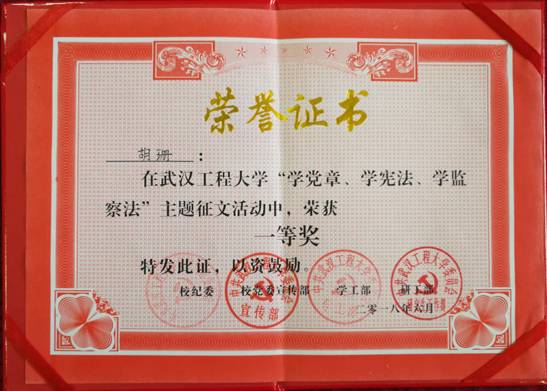 荣誉证书
胡珊：
在武汉工程大学“学党章、学宪法、学监
察法”主题征文活动中，荣获
一等奖
特发此证，以资鼓励。
校纪委 校党委宣传部 学工部 研工部
宣传部
二〇一八年六月